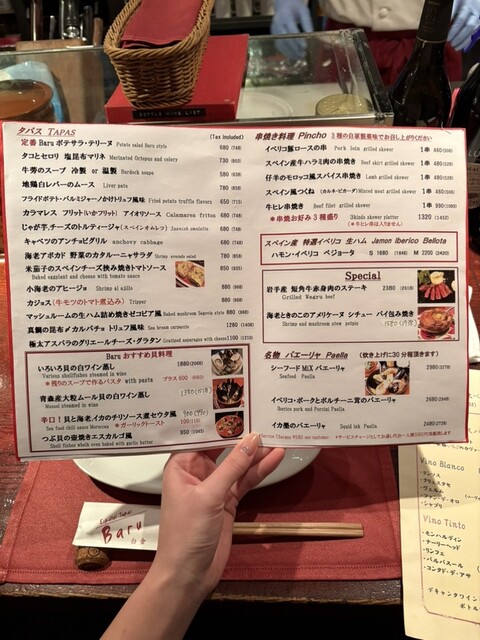 BOTTLE WINE LIST
タパス TAPAS
(Tax included)
定番 Baru ポテサラ・テリーヌ Potato salad Baru style 680 (748)
タコとセロリ 塩昆布マリネ Marinated Octopus and celery 730 (803)
牛蒡のスープ 冷製 or 温製 Burdock soup 580 (638)
地鶏白レバーのムース Liver pate 780 (858)
フライドポテト・パルミジャーノかけトリュフ風味 Fried potato truffle flavors 650 (715)
カラマレス フリット(いかフリット) アイオリソース Calamares frittos 680 (748)
じゃが芋、チーズのトルティージャ(スペインオムレツ) Spanish omelette 680 (748)
キャベツのアンチョビグリル anchovy cabbage 680 (748)
海老アボカド 野菜のカタルーニャサラダ Shrimp avocado salad 780 (858)
米茄子のスペインチーズ挟み焼きトマトソース 850 (935)
Baked eggplant and cheese with tomato sauce
小海老のアヒージョ Shrimp al ajillo 880 (968)
カジョス(牛モツのトマト煮込み) Tripper 880 (968)
マッシュルームの生ハム詰め焼きセゴビア風 Baked mushroom Segovia style 880 (968)
真鯛の昆布〆カルパチョ トリュフ風味 Sea bream carpaccio 1280 (1408)
極太アスパラのグリエールチーズ・グラタン Gratined asparagus with cheese 1100 (1210)
Baru おすすめ貝料理
いろいろ貝の白ワイン蒸し 1880 (2068)
Various shellfishes steamed in wine
＊残りのスープで作るパスタ with pasta プラス 600 (660)
青森産大粒ムール貝の白ワイン蒸し 1380 (1518)
Mussel steamed in wine
辛口！貝と海老イカのチリソース煮セウタ風 900 (990)
Sea food chili sauce Moroccan ＊ガーリックトースト 100 (110)
つぶ貝の壷焼きエスカルゴ風 950 (1045)
Shell fishes whelk oven baked with garlic butter
串焼き料理 Pincho 3種の自家製薬味でお召し上がりください
イベリコ豚ロースの串 Pork loin grilled skewer 1串 460 (506)
スペイン産牛ハラミ肉の串焼き Beef skirt grilled skewer 1串 460 (506)
仔羊のモロッコ風スパイス串焼き Lamb grilled skewer 1串 460 (506)
スペイン風つくね (カルネ・ピカーダ) Minced meat grilled skewer 1串 460 (506)
牛ヒレ串焼き Beef filet grilled skewer 1串 990 (1089)
＊串焼お好み3種盛り 3kinds skewer platter 1320 (1452)
(＊牛ヒレ串は入りません)
スペイン産 特選イベリコ 生ハム Jamon Iberico Bellota
ハモン・イベリコ ベジョータ S 1680 (1848) M 2200 (2420)
Special
岩手産 短角牛赤身肉のステーキ
Grilled Wagyu beef
海老ときのこのアメリケーヌ シチュー パイ包み焼き
Shrimp and mushroom stew potpie
名物 パエーリャ Paella (炊き上げに30分程頂きます)
シーフードMIX パエーリャ 2980 (3278)
Seafood Paella
イベリコ・ポークとポルチーニ茸のパエーリャ 2680 (2948)
Iberico pork and Porcini Paella
イカ墨のパエーリャ Squid ink Paella 2480 (2728)
Baru
白金
Vino Blanco
シャブリ
Vino Tinto
モンハルディン
リンフェ
バルバスール
コンダド・デ・アサ
デキャンタワイン
ボトル